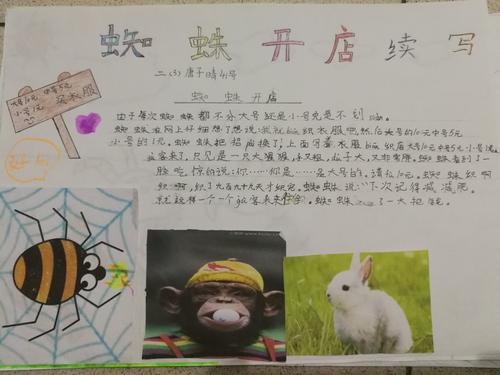 蜘蛛开店续写
二(3)唐子晴 41号
大号10元
中号5元
小号1元
买衣服
蜘蛛开店
由于每次蜘蛛都不分大号还是小号免是不划
蜘蛛在网上好细想了想说:就就
织衣服吧,然后大号的10元中号5元
小号的1元。蜘蛛把招牌换了,上面写着衣服
店大号10元中号5元小号1元
顾客来了,只见是一只大猩猩,
肚子大,又非常胖。蜘蛛看到了一
脸吃惊的说:你……你是……是大号的,请付10元。蜘蛛织啊
织啊,织了九百九十九天才织完,蜘蛛说:下次记得减减肥。
就这样一个一个顾客来
蜘蛛
了一大把